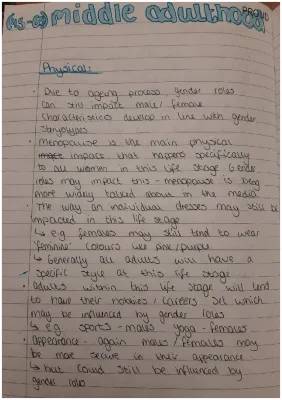 (45-65) middle adulthood
Physical:
· Due to ageing process gender roles
can still impact male/female
characteristics develop in line with gender
sterotypes
· Menopause is the main physical
impact that happens specifically
to all women in this life stage Gender
roles may impact this - menopause is being
more widely talked about in the media
· The way an individual dresses may still be
impacted in this life stage
↳ e.g. females may still tend to wear
'feminine' colours like pink/purple
↳ Generally all adults will have a
specific style at this life stage
· Adults within this life stage will tend
to have their hobbies/careers set which
may be influenced by gender roles
↳ e.g sports - males yoga - females
· Appearance - again males/females may
be more secure in their appearance
↳ but could still be influenced by
gender roles